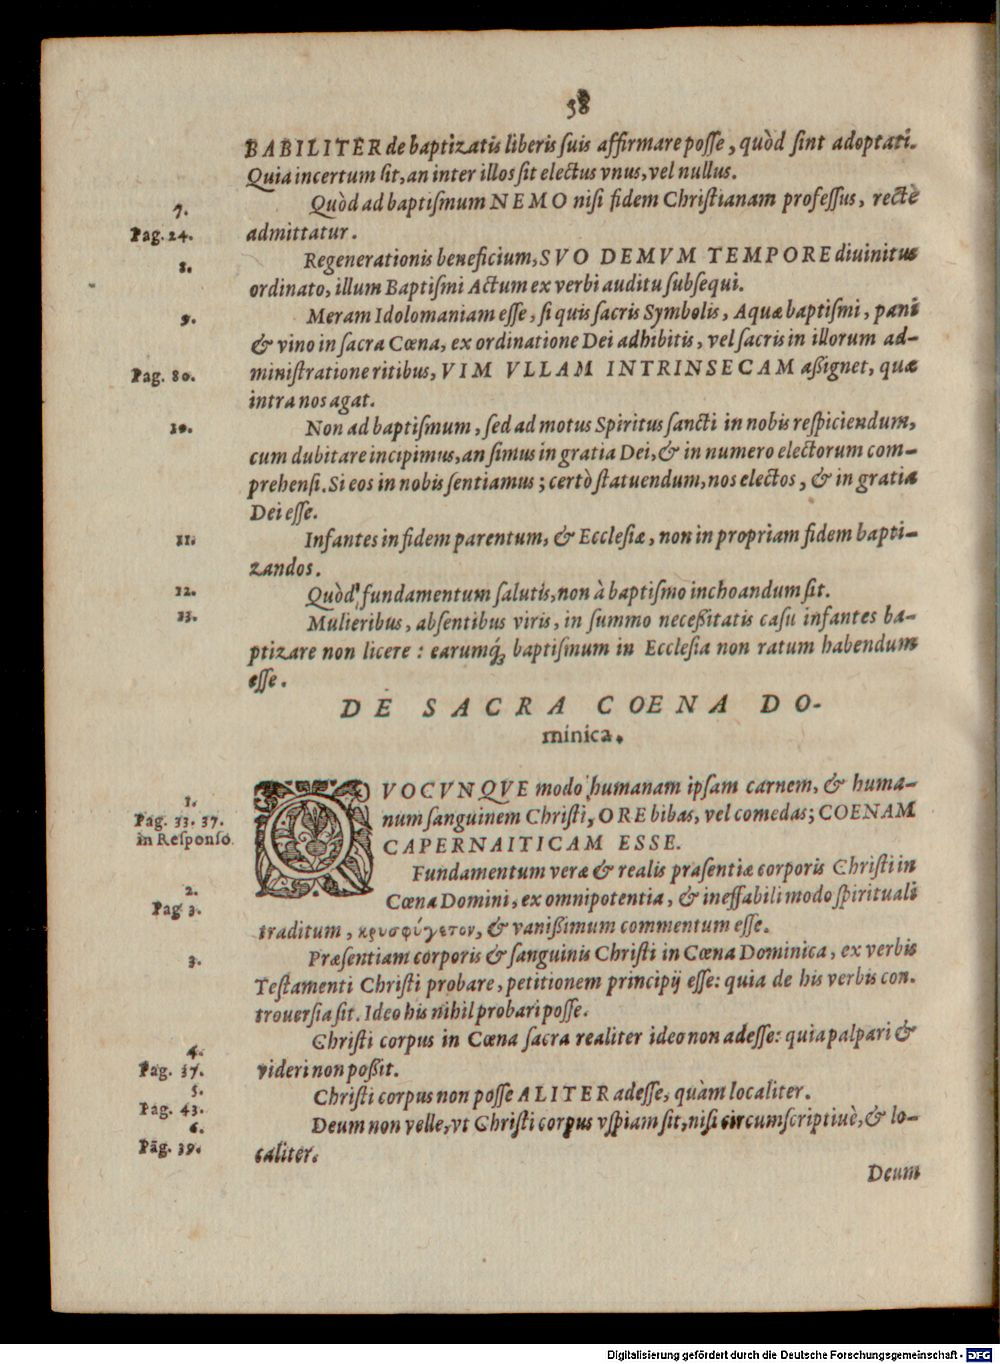 58
BABILITER de baptizatis liberis suis affirmare posse, quòd sint adoptati.
Quia incertum sit, an inter illos sit electus vnus, vel nullus.
7. Quòd ad baptismum NEMO nisi fidem Christianam professus, rectè
Pag. 24. admittatur.
8. Regenerationis beneficium, SVO DEMVM TEMPORE diuinitus
ordinato, illum Baptismi Actum ex verbi auditu subsequi.
9. Meram Idolomaniam esse, si quis sacris Symbolis, Aquæ baptismi, pani
& vino in sacra Cœna, ex ordinatione Dei adhibitis, vel sacris in illorum ad-
Pag. 80. ministratione ritibus, VIM VLLAM INTRINSECAM aßignet, quæ
intra nos agat.
10. Non ad baptismum, sed ad motus Spiritus sancti in nobis respiciendum,
cum dubitare incipimus, an simus in gratia Dei, & in numero electorum com-
prehensi. Si eos in nobis sentiamus; certò statuendum, nos electos, & in gratia
Dei esse.
11. Infantes in fidem parentum, & Ecclesiæ, non in propriam fidem bapti-
zandos.
12. Quòd fundamentum salutis, non à baptismo inchoandum sit.
13. Mulieribus, absentibus viris, in summo neceßitatis casu infantes ba-
ptizare non licere: earumq́; baptismum in Ecclesia non ratum habendum
esse.
DE SACRA COENA DO-
minica.
1. QVOCVNQVE modo humanam ipsam carnem, & huma-
Pag. 33. 37. num sanguinem Christi, ORE bibas, vel comedas; COENAM
in Responso. CAPERNAITICAM ESSE.
Fundamentum veræ & realis præsentiæ corporis Christi in
2. Cœna Domini, ex omnipotentia, & ineffabili modo spirituali
Pag 3. traditum, κρυσφύγετον, & vanißimum commentum esse.
3. Præsentiam corporis & sanguinis Christi in Cœna Dominica, ex verbis
Testamenti Christi probare, petitionem principij esse: quia de his verbis con-
trouersia sit. Ideo his nihil probari posse.
4. Christi corpus in Cœna sacra realiter ideo non adesse: quia palpari &
Pag. 37. videri non poßit.
5. Christi corpus non posse ALITER adesse, quàm localiter.
Pag. 43.
6. Deum non velle, vt Christi corpus vspiam sit, nisi circumscriptiuè, & lo-
Pag. 39. caliter.
Deum
Digitalisierung gefördert durch die Deutsche Forschungsgemeinschaft - DFG